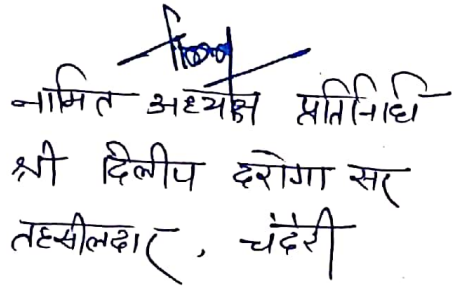 नामित अध्यक्ष प्रतिनिधि
श्री दिलीप दरोगा सर
तहसीलदार, चंदेरी